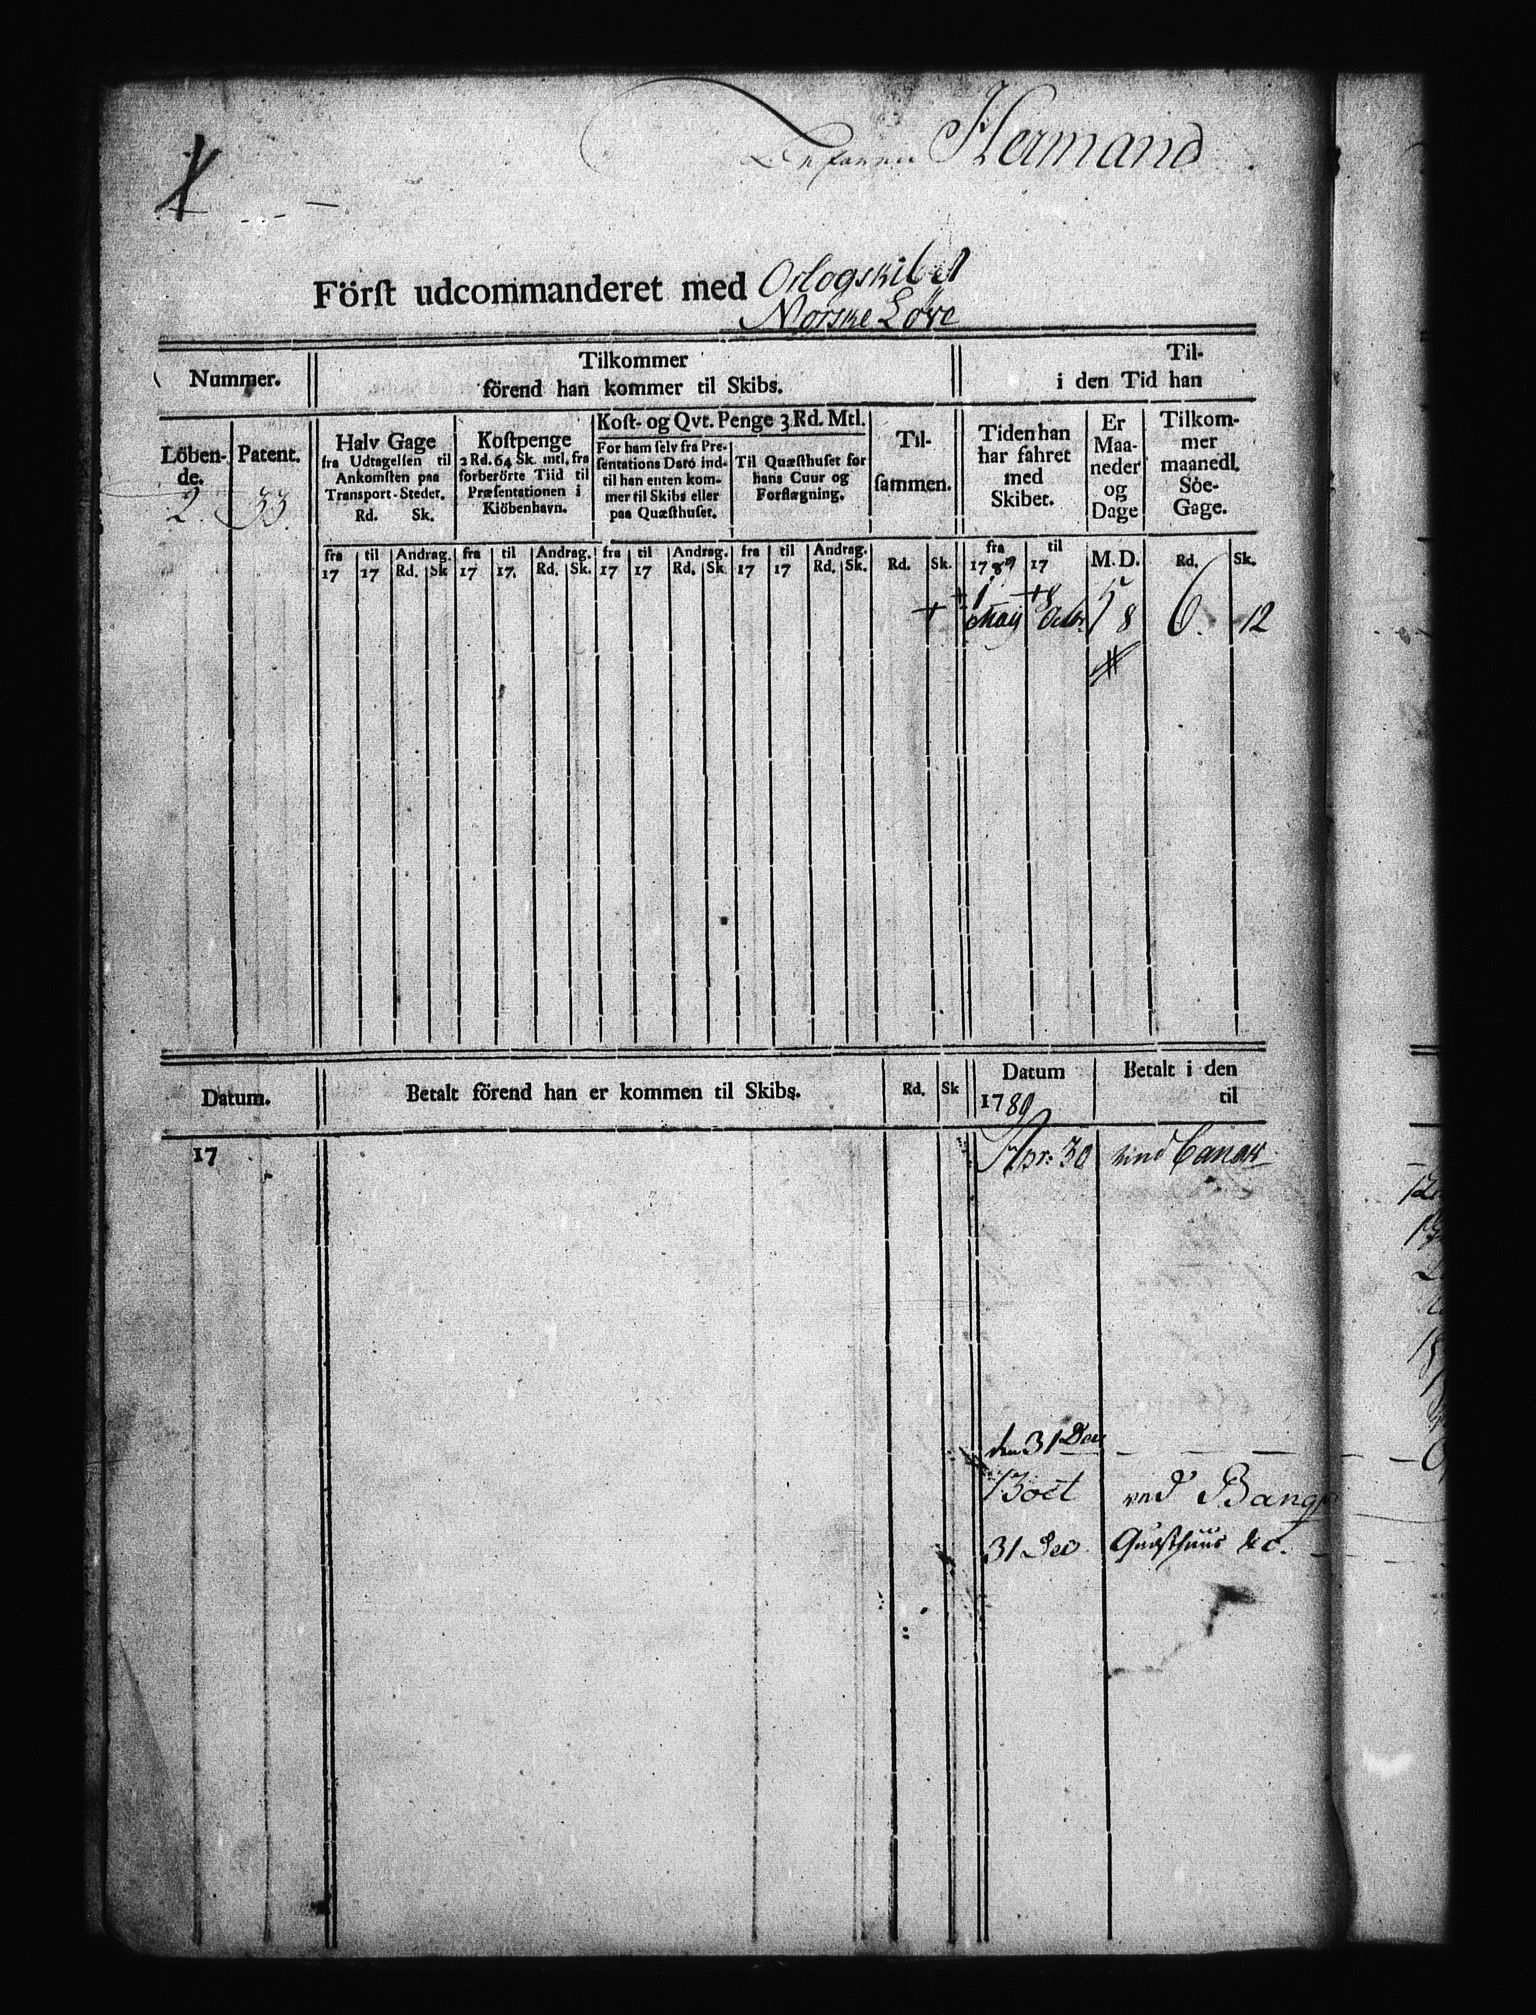 Hermand
Först udcommanderet med Orlogskibet
Norske Löve
Nummer.
Tilkommer
förend han kommer til Skibs.
Til-
i den Tid han
Löben-
de.
Patent.
Halv Gage
fra Udtagelsen til
Ankomsten paa
Transport-Stedet.
Rd. Sk.
Kostpenge
2 Rd. 64 Sk. mtl. fra
forberörte Tiid til
Præsentationen i
Kiöbenhavn.
Kost- og Qvt. Penge 3 Rd. Mtl.
For ham selv fra Pre-
sentations Dato ind-
til han enten kom-
mer til Skibs eller
paa Quæsthuset.
Til Quæsthuset for
hans Cuur og
Forflægning.
Til-
sammen.
Tiden han
har fahret
med
Skibet.
Er
Maa-
neder
og
Dage
Tilkom-
mer
maanedl.
Söe-
Gage.
2. 33.
fra 17 til 17 Andrag. Rd. Sk fra 17 til 17. Andrag. Rd. Sk. fra 17 til 17 Andrag. Rd. Sk. fra 17 til 17 Andrag. Rd. Sk. Rd. Sk. fra 1789 til 17 M. D. Rd. Sk.
+ 1 May 8 Octbr 5 8 6. 12
Datum. Betalt förend han er kommen til Skibs. Rd. Sk Datum 1789 Betalt i den
til
17 Apr: 30 ved Canok
den 31 Dec
13 oct ved Bang
31 Dec Quæsthuus &c.